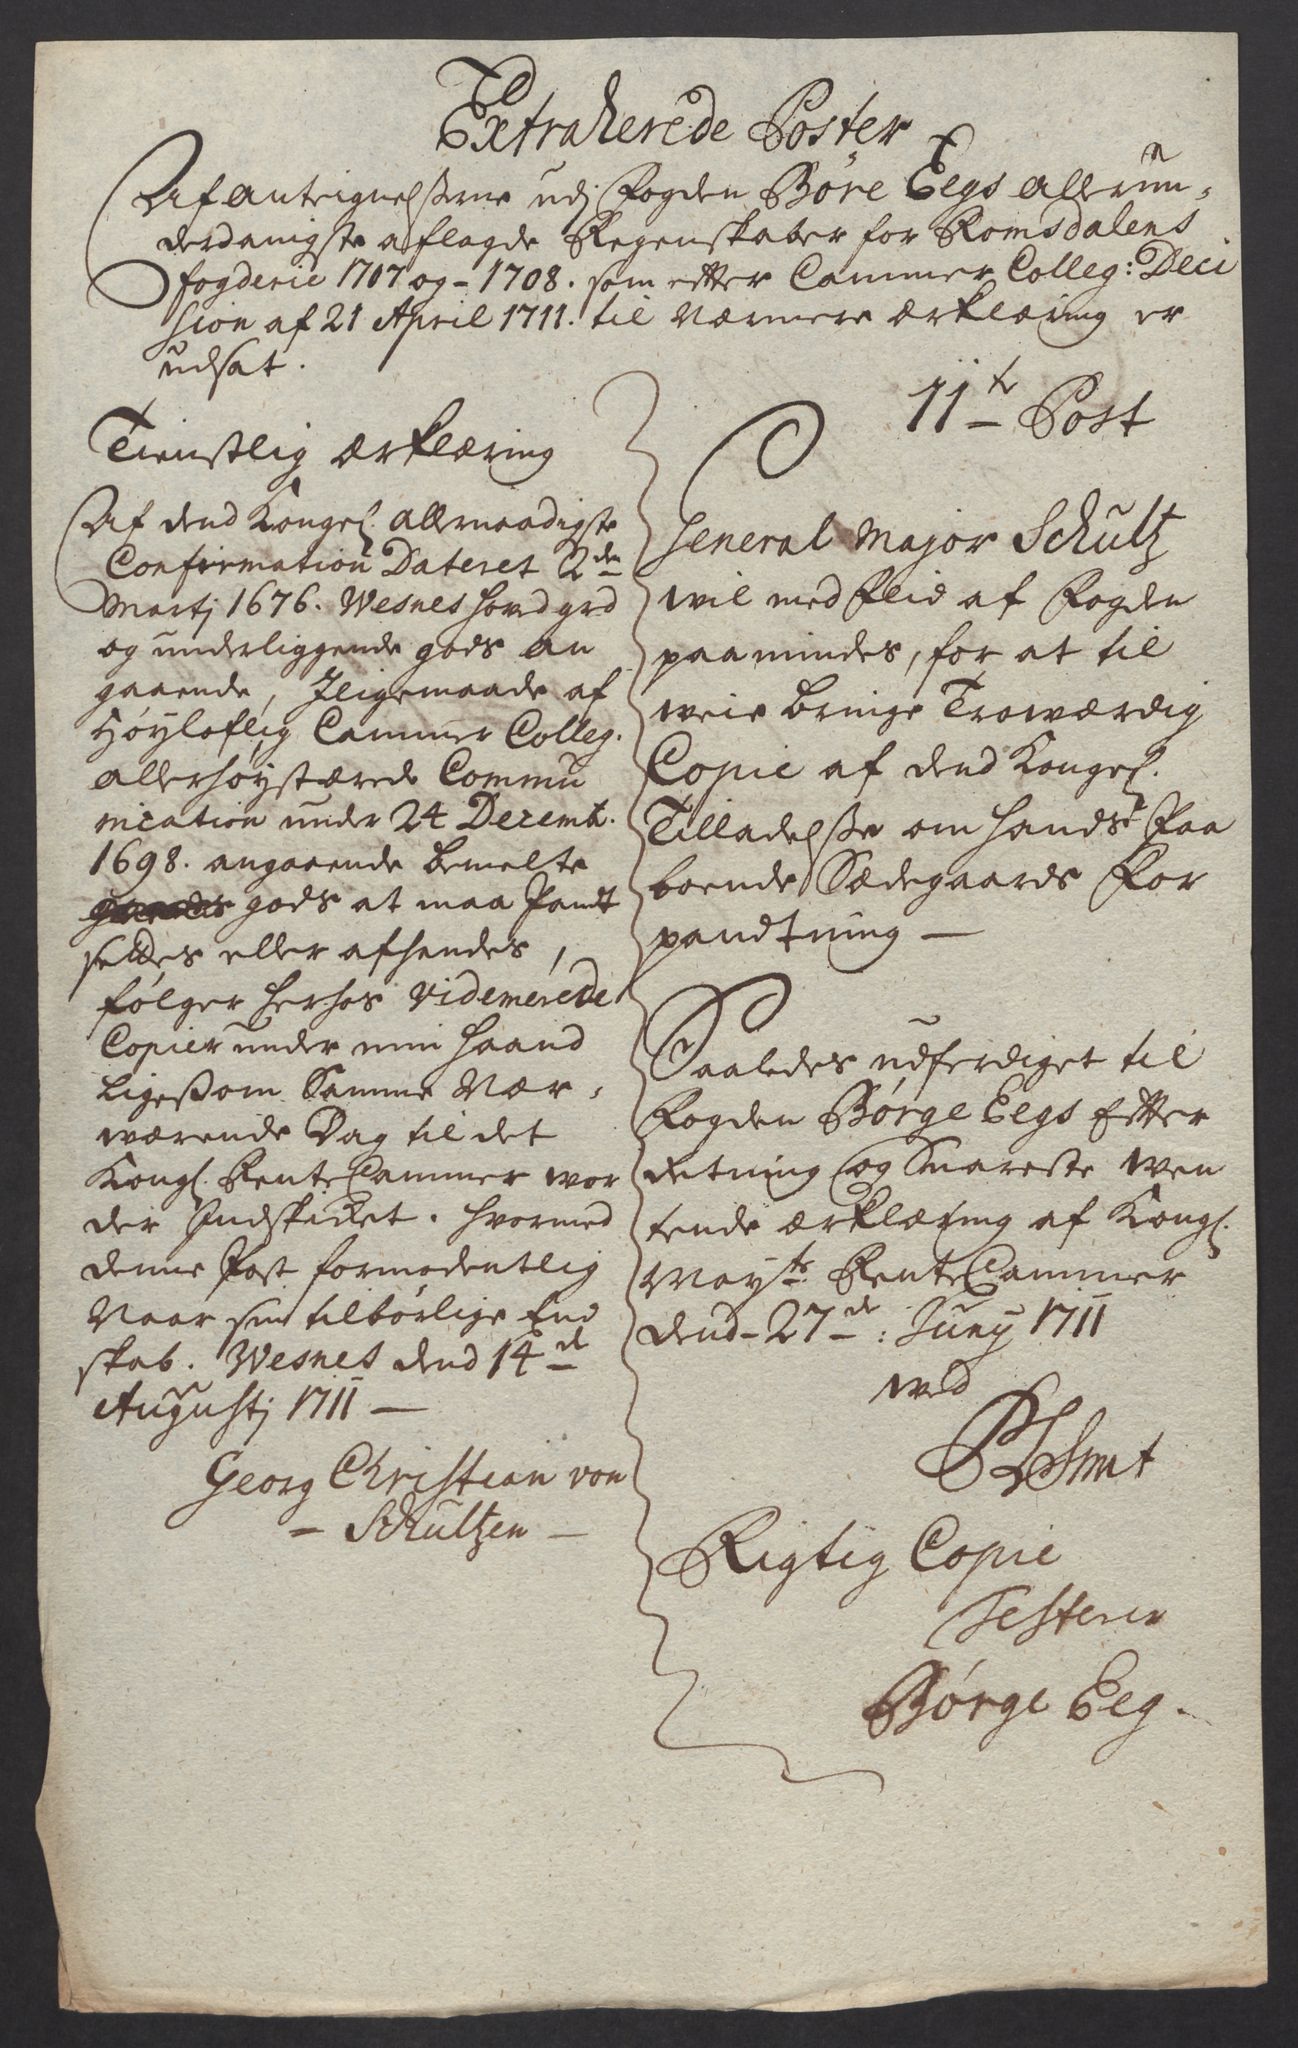 Extraherede Poster
Af Anteignelsserne udj Fogden Böre Eegs allerun-
derdanigste aflagde Regenskaber for Romsdalens
fogderie 1707 og - 1708. som efter Cammer Colleg: Deci
sion af 21 April 1711. til nærmere ærklæring er
udsat.
Tienstlig ærklæring
Af dend Kongel. allernaadigste
Confirmation Dateret 2de
Martj 1676. Wesnes hovdgrd
og underliggende gods an
gaaende, Jligemaade af
Høyloflig Cammer Colleg.
allerhøystærede Commu
nication under 24 Decemb.
1698. angaaende bemelte
gods at maa Pandt
settes eller afhendes,
følger herhos videmerede
Copier under min haand
ligessom Samme Nær-
wærende Dag til det
Kongl. Rente Cammer wor
der Indskicket. hvormed
denne Post formodentlig
Naar sin tilbørlige End
skab. Wesnes dend 14de
Augustj 1711 —
Georg Christian von
- Schultzen -
11te Post
General Major Schultz
wil med Flid af Fogden
paamindes, for at til
weie bringe Troværdig
Copie af dend Kongel.
Tilladelsse om hands Paa
boende Sædegaards For
pandtning —
Saaledes udferdiget til
Fogden Børge Eegs Efter
retning og Snareste wen
tende ærklæring af Kongl.
Mayts. Rente Cammer
dend - 27de: Juny 1711
wed
Smit
Rigtig Copie
Testerer
Børge Eeg.